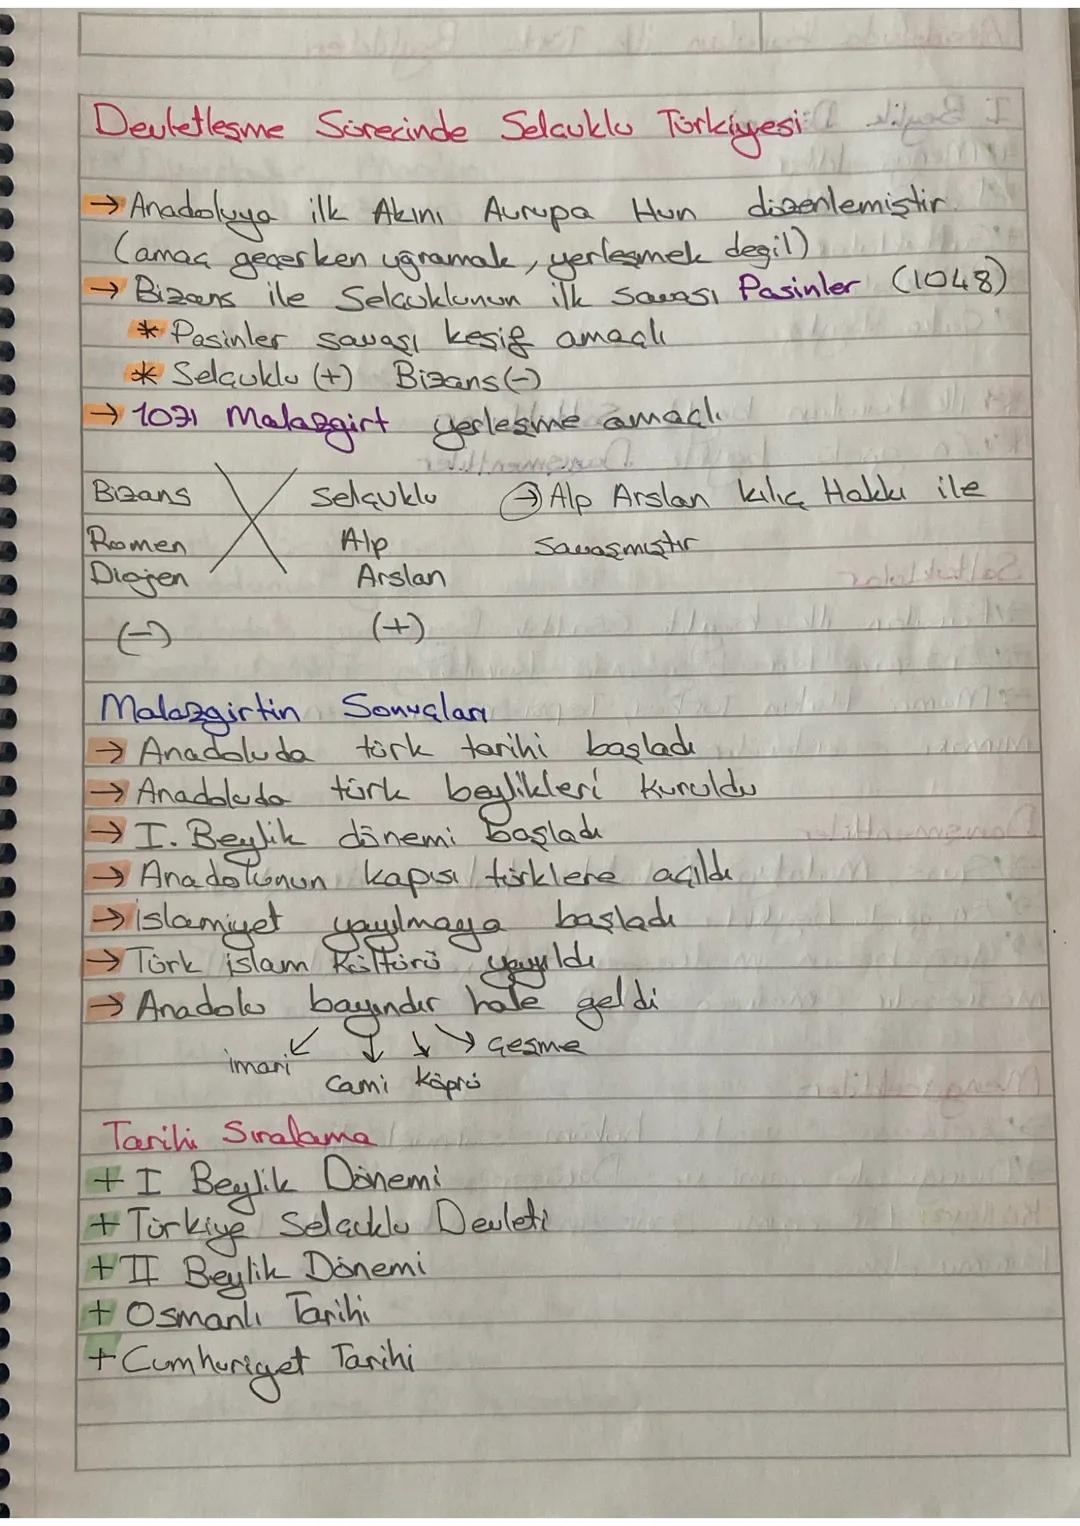 Devletleşme Sürecinde Selçuklu Türkiyesi
→ Anadoluya ilk Akını Avrupa Hun düzenlemiştir.
(amaç geçerken uğramak, yerleşmek değil)
→ Bizans ile Selçuklunun ilk savaşı Pasinler (1048)
* Pasinler savaşı keşif amaçlı
* Selçuklu (+) Bizans (-)
→ 1071 Malazgirt yerleşme amaçlı
Bizans Selçuklu → Alp Arslan kılıç Hakkı ile
Romen Alp savaşmıştır
Diojen Arslan
(-) (+)
Malazgirtin Sonuçları
→ Anadoluda türk tarihi başladı
→ Anadoluda türk beylikleri kuruldu
→ I. Beylik dönemi başladı
→ Anadolunun kapısı türklere açıldı
→ islamiyet yayılmaya başladı
→ Türk islam Kültürü yayıldı
→ Anadolu bayındır hale geldi
imari cami köprü çeşme
Tarihi Sıralama
+ I Beylik Dönemi
+ Türkiye Selçuklu Devleti
+ II Beylik Dönemi
+ Osmanlı Tarihi
+ Cumhuriyet Tarihi